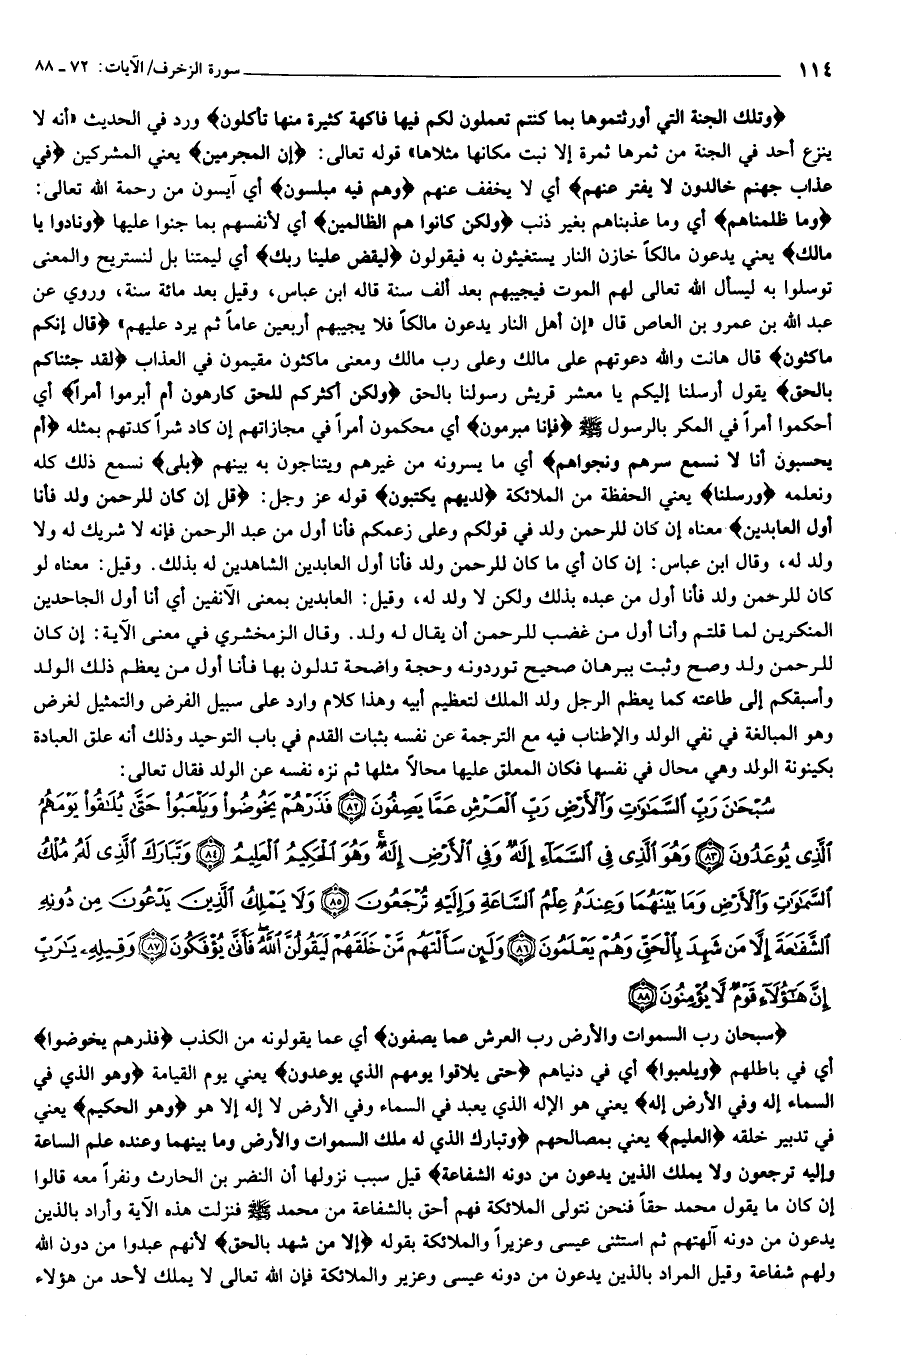 ١١٤ سورة الزخرف/ الآيات: ٧٢ ـ ٨٨
﴿وتلك الجنة التي أورثتموها بما كنتم تعملون لكم فيها فاكهة كثيرة منها تأكلون﴾ ورد في الحديث «أنه لا
ينزع أحد في الجنة من ثمرها ثمرة إلا نبت مكانها مثلاها» قوله تعالى: ﴿إن المجرمين﴾ يعني المشركين ﴿في
عذاب جهنم خالدون لا يفتر عنهم﴾ أي لا يخفف عنهم ﴿وهم فيه مبلسون﴾ أي آيسون من رحمة الله تعالى:
﴿وما ظلمناهم﴾ أي وما عذبناهم بغير ذنب ﴿ولكن كانوا هم الظالمين﴾ أي لأنفسهم بما جنوا عليها ﴿ونادوا يا
مالك﴾ يعني يدعون مالكاً خازن النار يستغيثون به فيقولون ﴿ليقض علينا ربك﴾ أي ليمتنا بل لنستريح والمعنى
توسلوا به ليسأل الله تعالى لهم الموت فيجيبهم بعد ألف سنة قاله ابن عباس، وقيل بعد مائة سنة، وروي عن
عبد الله بن عمرو بن العاص قال «إن أهل النار يدعون مالكاً فلا يجيبهم أربعين عاماً ثم يرد عليهم» ﴿قال إنكم
ماكثون﴾ قال هانت والله دعوتهم على مالك وعلى رب مالك ومعنى ماكثون مقيمون في العذاب ﴿لقد جئناكم
بالحق﴾ يقول أرسلنا إليكم يا معشر قريش رسولنا بالحق ﴿ولكن أكثركم للحق كارهون أم أبرموا أمراً﴾ أي
أحكموا أمراً في المكر بالرسول ﷺ ﴿فإنا مبرمون﴾ أي محكمون أمراً في مجازاتهم إن كاد شراً كدتهم بمثله ﴿أم
يحسبون أنا لا نسمع سرهم ونجواهم﴾ أي ما يسرونه من غيرهم ويتناجون به بينهم ﴿بلى﴾ نسمع ذلك كله
ونعلمه ﴿ورسلنا﴾ يعني الحفظة من الملائكة ﴿لديهم يكتبون﴾ قوله عز وجل: ﴿قل إن كان للرحمن ولد فأنا
أول العابدين﴾ معناه إن كان للرحمن ولد في قولكم وعلى زعمكم فأنا أول من عبد الرحمن فإنه لا شريك له ولا
ولد له، وقال ابن عباس: إن كان أي ما كان للرحمن ولد فأنا أول العابدين الشاهدين له بذلك. وقيل: معناه لو
كان للرحمن ولد فأنا أول من عبده بذلك ولكن لا ولد له، وقيل: العابدين بمعنى الآنفين أي أنا أول الجاحدين
المنكرين لما قلتم وأنا أول من غضب للرحمن أن يقال له ولد. وقال الزمخشري في معنى الآية: إن كان
للرحمن ولد وصح وثبت ببرهان صحيح توردونه وحجة واضحة تدلون بها فأنا أول من يعظم ذلك الولد
وأسبقكم إلى طاعته كما يعظم الرجل ولد الملك لتعظيم أبيه وهذا كلام وارد على سبيل الفرض والتمثيل لغرض
وهو المبالغة في نفي الولد والإطناب فيه مع الترجمة عن نفسه بثبات القدم في باب التوحيد وذلك أنه علق العبادة
بكينونة الولد وهي محال في نفسها فكان المعلق عليها محالاً مثلها ثم نزه نفسه عن الولد فقال تعالى:
سُبْحَٰنَ رَبِّ ٱلسَّمَٰوَٰتِ وَٱلْأَرْضِ رَبِّ ٱلْعَرْشِ عَمَّا يَصِفُونَ ﴿٨٢﴾ فَذَرْهُمْ يَخُوضُوا۟ وَيَلْعَبُوا۟ حَتَّىٰ يُلَٰقُوا۟ يَوْمَهُمُ
ٱلَّذِى يُوعَدُونَ ﴿٨٣﴾ وَهُوَ ٱلَّذِى فِى ٱلسَّمَآءِ إِلَٰهٌ وَفِى ٱلْأَرْضِ إِلَٰهٌ وَهُوَ ٱلْحَكِيمُ ٱلْعَلِيمُ ﴿٨٤﴾ وَتَبَارَكَ ٱلَّذِى لَهُۥ مُلْكُ
ٱلسَّمَٰوَٰتِ وَٱلْأَرْضِ وَمَا بَيْنَهُمَا وَعِندَهُۥ عِلْمُ ٱلسَّاعَةِ وَإِلَيْهِ تُرْجَعُونَ ﴿٨٥﴾ وَلَا يَمْلِكُ ٱلَّذِينَ يَدْعُونَ مِن دُونِهِ
ٱلشَّفَٰعَةَ إِلَّا مَن شَهِدَ بِٱلْحَقِّ وَهُمْ يَعْلَمُونَ ﴿٨٦﴾ وَلَئِن سَأَلْتَهُم مَّنْ خَلَقَهُمْ لَيَقُولُنَّ ٱللَّهُ فَأَنَّىٰ يُؤْفَكُونَ ﴿٨٧﴾ وَقِيلِهِۦ يَٰرَبِّ
إِنَّ هَٰٓؤُلَآءِ قَوْمٌ لَّا يُؤْمِنُونَ ﴿٨٨﴾
﴿سبحان رب السموات والأرض رب العرش عما يصفون﴾ أي عما يقولونه من الكذب ﴿فذرهم يخوضوا﴾
أي في باطلهم ﴿ويلعبوا﴾ أي في دنياهم ﴿حتى يلاقوا يومهم الذي يوعدون﴾ يعني يوم القيامة ﴿وهو الذي في
السماء إله وفي الأرض إله﴾ يعني هو الإله الذي يعبد في السماء وفي الأرض لا إله إلا هو ﴿وهو الحكيم﴾ يعني
في تدبير خلقه ﴿العليم﴾ يعني بمصالحهم ﴿وتبارك الذي له ملك السموات والأرض وما بينهما وعنده علم الساعة
وإليه ترجعون ولا يملك الذين يدعون من دونه الشفاعة﴾ قيل سبب نزولها أن النضر بن الحارث ونفراً معه قالوا
إن كان ما يقول محمد حقاً فنحن نتولى الملائكة فهم أحق بالشفاعة من محمد ﷺ فنزلت هذه الآية وأراد بالذين
يدعون من دونه آلهتهم ثم استثنى عيسى وعزيراً والملائكة بقوله ﴿إلا من شهد بالحق﴾ لأنهم عبدوا من دون الله
ولهم شفاعة وقيل المراد بالذين يدعون من دونه عيسى وعزير والملائكة فإن الله تعالى لا يملك لأحد من هؤلاء